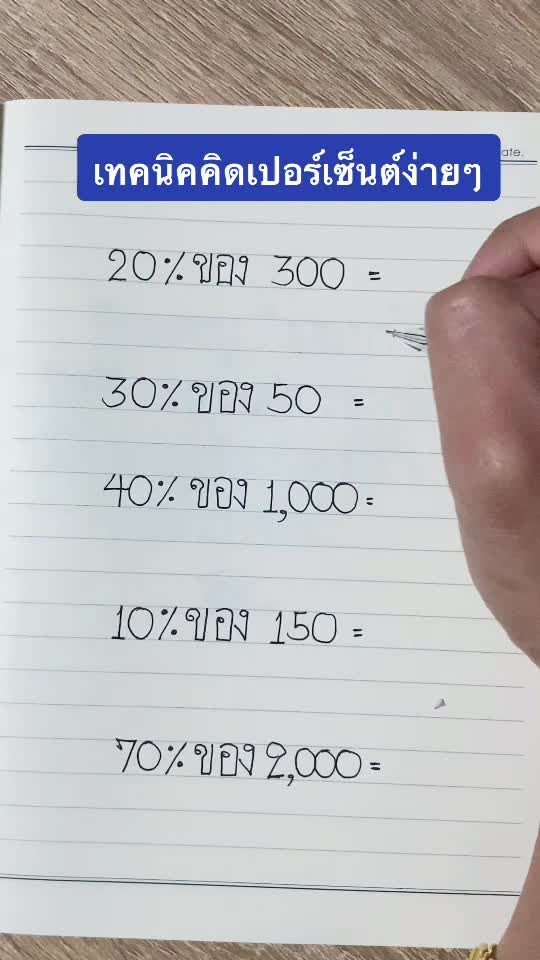 ate.
เทคนิคคิดเปอร์เซ็นต์ง่ายๆ
20% ของ 300 =
30% ของ 50 =
40% ของ 1,000 =
10% ของ 150 =
70% ของ 2,000 =